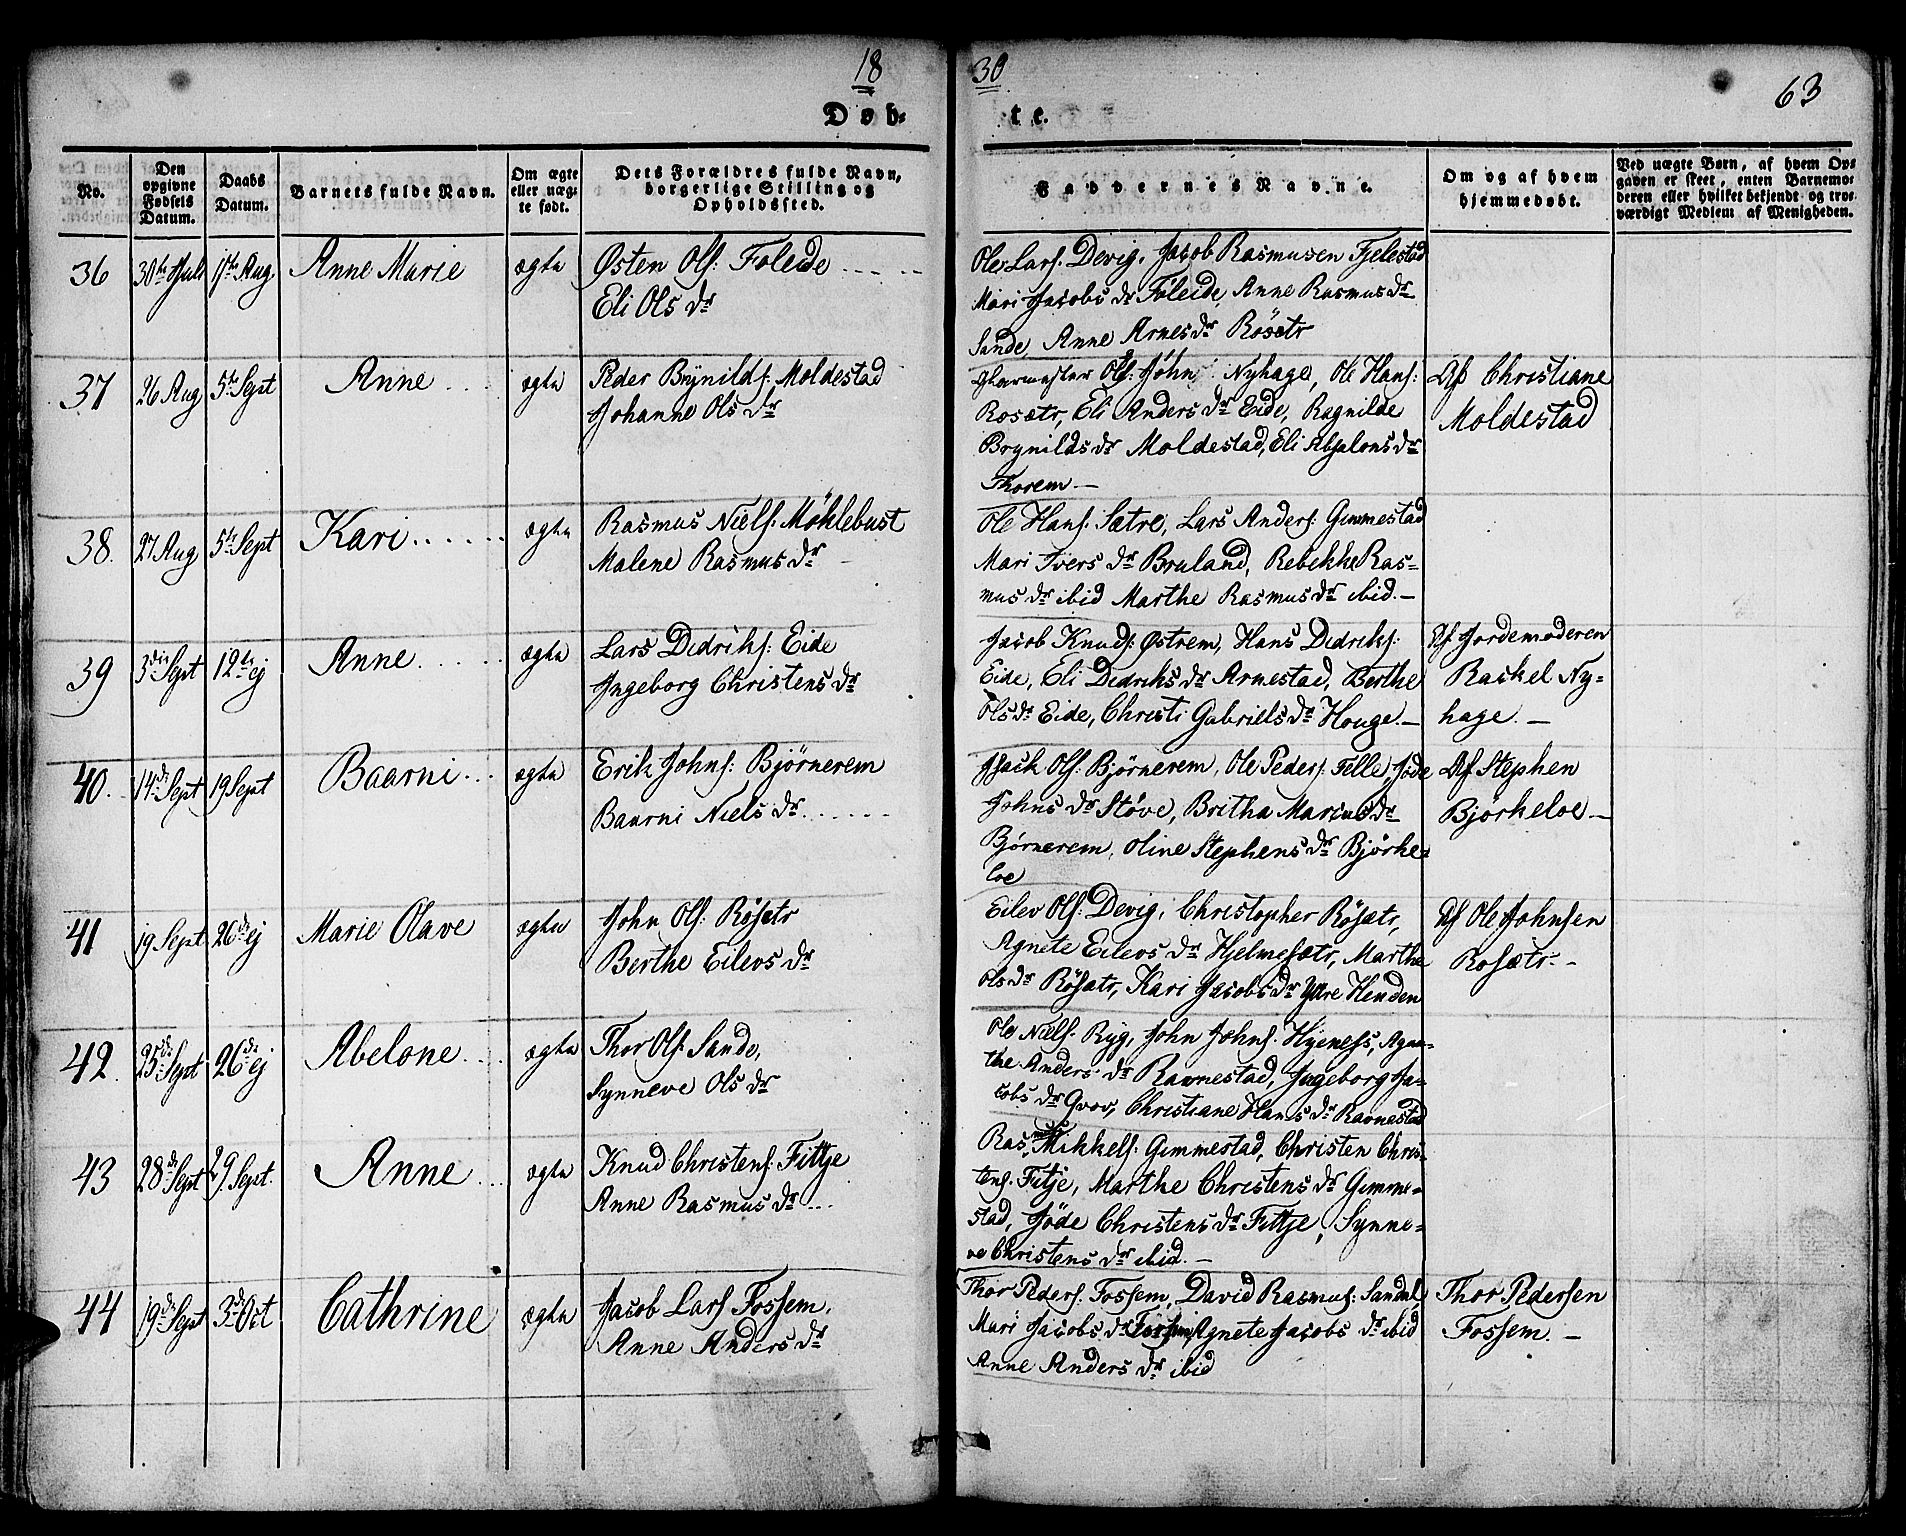 18 30 63
Døb- te.
No.
Den opgivne Fødsels Datum.
Daabs Datum.
Barnets fulde Navn.
Om ægte eller uægte født.
Dets Forældres fulde Navn, borgerlige Stilling og Opholdssted.
Faddernes Navne.
Om og af hvem hjemmedøbt.
Ved uægte Børn, af hvem Opgaven er skeet, enten Barnemoderen eller hvilket bekjendt og troværdigt Medlem af Menigheden.
36 30te Juli 1ste Aug Anne Marie ægte Østen Ols: Føleide
Eli Ols dr
Ole Lars: Devig, Jacob Rasmusen Fjelestad
Mari Jacobs dr Føleide, Anne Rasmus dr
Sande, Anne Arnes dr Rösætr
37 26 Aug 5te Sept Anne ægte Peder Brynilds: Moldestad
Johanne Ols dr
Glarmester Ols: John Nyhage, Ole Hans:
Rosætr, Eli Anders dr Eide, Ragnilde
Brynilds dr Moldestad, Eli Absalons dr
Thorem.—
Af Christiane
Moldestad
38. 27 Aug 5te Sept Kari ægte Rasmus Niels: Möklebust
Malene Rasmus dr
Ole Hans: Sætre, Lars Anders: Gimmestad
Mari Ivers dr Bruland, Rebekke Ras-
mus dr ibid Marthe Rasmus dr ibid.—
39 3die Sept 12te ej Anne ægte Lars Didriks: Eide
Ingeborg Christens dr
Jacob Knuds: Østrem, Hans Didriks:
Eide, Eli Didriks dr Arnestad, Berthe
Ols dr Eide, Christi Gabriels dr Houge.—
Af Jordemoderen
Raskel Ny-
hage.—
40. 14de Sept 19 Sept Baarni ægte Erik Johns: Bjørnerem
Baarni Niels dr
Isack Ols: Bjørnerem, Ole Peders: Felle, Jøde
Johns dr Støve, Britha Marius dr
Bjørnerem, Oline Stephens dr Bjørke-
loe
Af Stephen
Bjørkeloe—
41 19 Sept 26de ej Marie Olave ægte John Ols: Røsætr
Berthe Eilevs dr
Eilev Ols: Devig, Christopher Røsætr,
Agnete Eilevs dr Hjelmesætr, Marthe
Ols dr Røsætr, Kari Jacobs dr Ytre Henden
Af Ole Johnsen
Rosætr.-
42. 25de Sept 26de ej Abelone ægte Thor Ols: Sande,
Synneve Ols dr
Ole Niels: Ryg, John Johns: Hyenes, Agne-
the Anders dr Ravnestad, Ingeborg Ja-
cobs dr Qvov, Christiane Hans dr Ravnestad
43 28de Sept 29. Sept. Anne ægte Knud Christens: Fittje
Anne Rasmus dr
Rasmus Mikkels: Gimmestad, Christen Chris-
tens: Fitje, Marthe Christens dr Gimme-
stad, Jøde Christens dr Fittje, Synne-
ve Christens dr ibid.—
44 19de Sept 3de Oct Cathrine ægte Jacob Lars: Fossem,
Anne Anders dr
Thor Peders: Fossem, David Rasmus: Sandal,
Mari Jacobs dr Fossem, Agnete Jacobs dr ibid
Anne Anders dr ibid
Thor Pedersen
Fossem.—